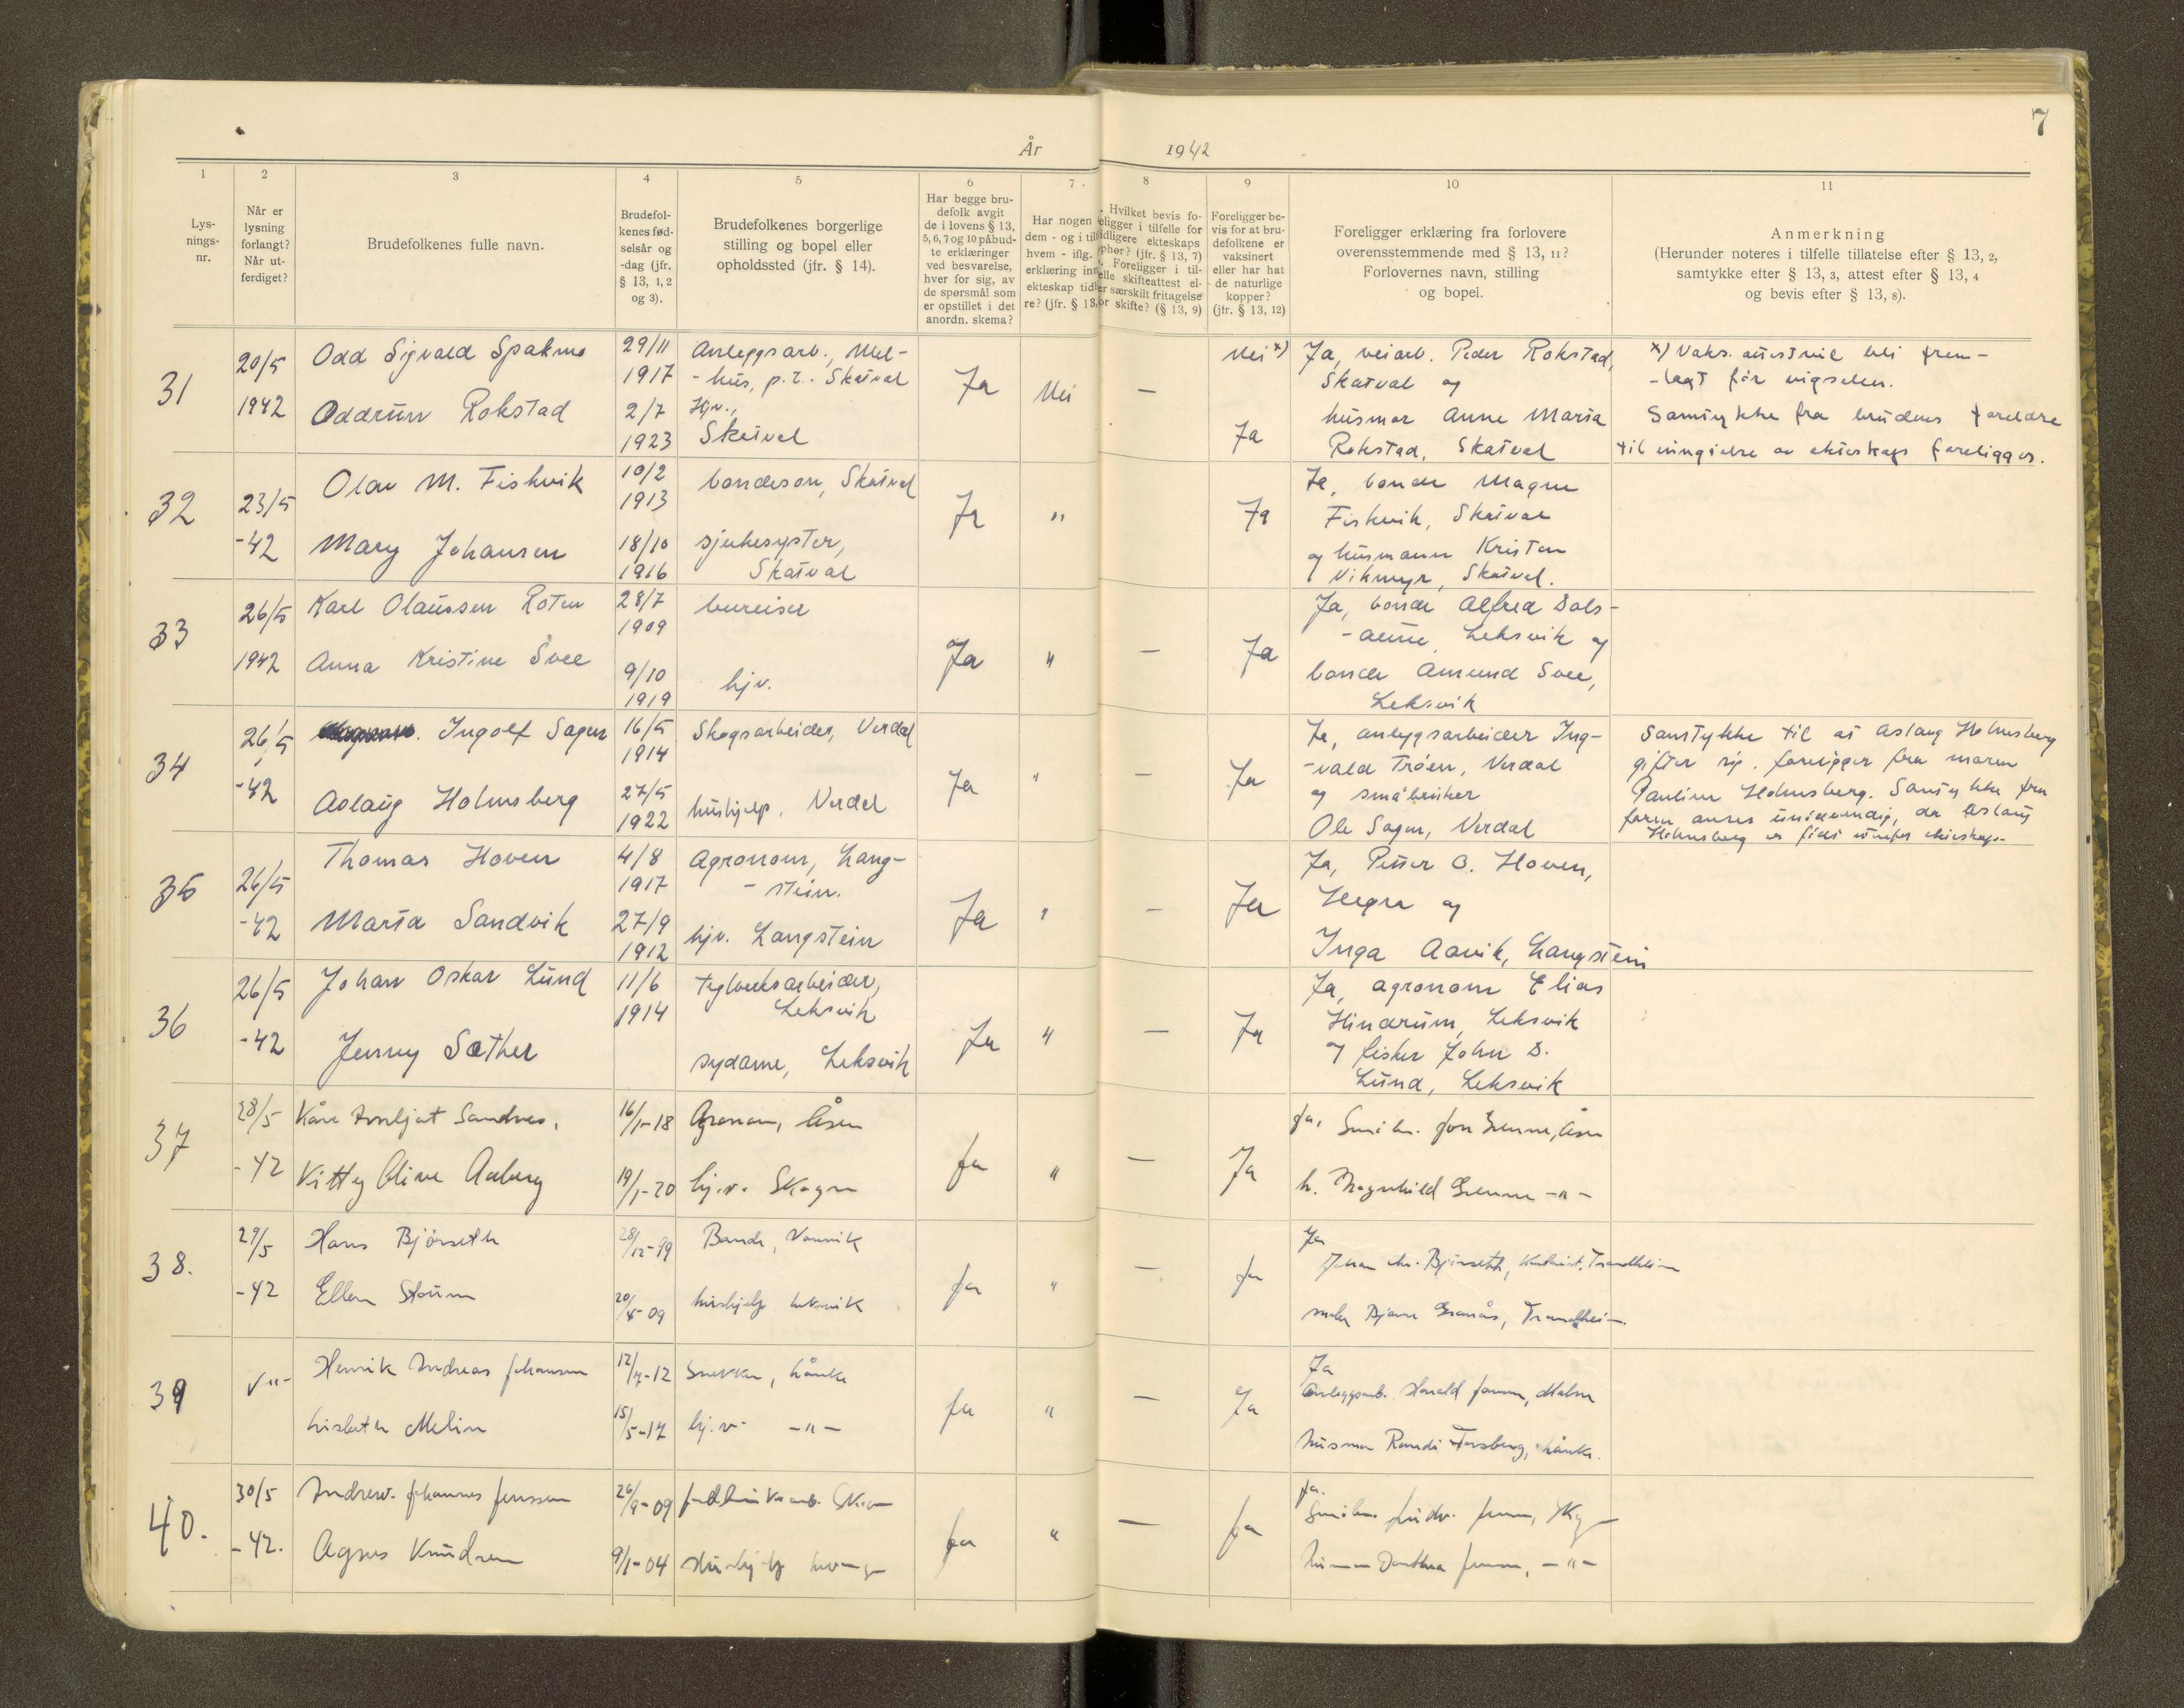 7
År 1942
1 2 3 4 5 6 7 8 9 10 11
Lys-
nings-
nr.
Når er
lysning
forlangt?
Når ut-
ferdiget?
Brudefolkenes fulle navn.
Brudefol-
kenes fød-
selsår og
-dag (jfr.
§ 13, 1, 2
og 3).
Brudefolkenes borgerlige
stilling og bopel eller
opholdssted (jfr. § 14).
Har begge bru-
defolk avgit
de i lovens § 13,
5, 6, 7 og 10 påbud-
te erklæringer
ved besvarelse,
hver for sig, av
de spørsmål som
er opstillet i det
anordn. skema?
Har nogen
dem - og i til
hvem - iflg.
erklæring inn
ekteskap tid
re? (jfr. § 13,
Hvilket bevis fo-
eligger i tilfelle for
tidligere ekteskaps
ophør? (jfr. § 13, 7)
Foreligger i til-
elle skifteattest el-
er særskilt fritagelse
or skifte? (§ 13, 9)
Foreligger be-
vis for at bru-
defolkene er
vaksinert
eller har hat
de naturlige
kopper?
(jfr. § 13, 12)
Foreligger erklæring fra forlovere
overensstemmende med § 13, 11?
Forlovernes navn, stilling
og bopel.
Anmerkning
(Herunder noteres i tilfelle tillatelse efter § 13, 2,
samtykke efter § 13, 3, attest efter § 13, 4
og bevis efter § 13, 8).
31
20/5
1942
Odd Sigvald Spakmo
Oddrun Rokstad
29/11
1917
2/7
1923
Anleggsarb., Mel-
-hus, p.t. Skatval
Hjv.,
Skatval
Ja
Nei
—
Nei x)
Ja
Ja, veiarb. Peder Rokstad,
Skatval og
husmor Anne Maria
Rokstad, Skatval
x) Vaks. attest vil bli frem-
-lagt før vigselen.
Samtykke fra brudens foreldre
til inngåelse av ekteskap foreligger.
32
23/5
-42
Olav M. Fiskvik
Mary Johansen
10/2
1913
18/10
1916
bondesøn, Skatval
sjukesyster,
Skatval
Ja
"
Ja
Ja, bonde Magne
Fiskvik, Skatval
og husmann Kristen
Vikmyr, Skatval.
33
26/5
1942
Karl Olaussen Roten
Anna Kristine Svee
28/7
1909
9/10
1919
bureiser
hjv.
Ja
"
—
Ja
Ja, bonde Alfred Dals-
-aune, Leksvik og
bonde Amund Svee,
Leksvik
34
26/5
-42
Ingolf Sagen
Aslaug Holmsberg
16/5
1914
27/5
1922
Skogsarbeider, Verdal
hushjelp, Verdal
Ja
"
—
Ja
Ja, anleggsarbeider Ing-
-vald Trøen, Verdal
og småbruker
Ole Sagen, Verdal
Samtykke til at Aslaug Holmsberg
gifter sig, foreligger fra moren
Pauline Holmsberg. Samtykke fra
faren anses unødvendig, da Aslaug
Holmsberg er født utenfor ekteskap.
35
26/5
-42
Thomas Hoven
Marta Sandvik
4/8
1917
27/9
1912
Agronom, Lang-
-stein.
hjv. Langstein
Ja
"
—
Ja
Ja, Petter O. Hoven,
Hegra og
Inga Aavik, Langstein
36
26/5
-42
Johan Oskar Lund
Jenny Sæther
11/6
1914
Teglverksarbeider,
Leksvik
sydame, Leksvik
Ja
"
—
Ja
Ja, agronom Elias
Hindrum, Leksvik
og fisker John D.
Lund, Leksvik
37
28/5
-42
Kåre Sandnes,
Kitty Oline Aaberg
16/1-18
19/1-20
Agronom, Åsen
hj.v. Skogn
Ja
"
—
Ja
Ja, Småbr. Jon Grenne, Åsen
h. Ragnhild Grenne -"-
38.
29/5
-42
Hans Bjørseth
Ellen Staum
28/12-99
20/4-09
Bonde, Vannvik
hushjelp Leksvik
Ja
"
—
Ja
Ja
Johan Chr. Bjørseth, Trondheim
maler Bjarne Granås, Trondheim.
39
-"-
Henrik Andreas Johansen
Lisbeth Melin
12/7-12
15/5-17
Snekker, Lånke
hj.v. -"-
Ja
"
—
Ja
Ja
Anleggsarb. Harald Jensen, Malm
husmor Randi Forsberg, Lånke.
40.
30/5
-42.
Andrew Johannes Jenssen
Agnes Knudsen
26/9-09
9/1-04
Hushjelp
Ja
"
—
Ja
Ja.
-"-